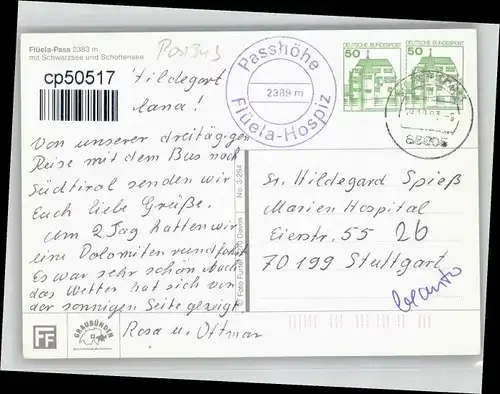 Flüela-Pass 2383 m
mit Schwarzsee und Schottensee
cp50517
Hildegart
Jana!
Von unserer dreitägigen
Reise mit dem Bus nach
Südtirol senden wir
Euch liebe Grüße.
am 2 Tag hatten wir
eine Dolomiten rundfahrt
Es war sehr schön Auch
das Wetter hat sich von
der sonnigen Seite gezeigt.
Rosa u. Ottmar
FF
GRAUBÜNDEN
No. 3-254
© Foto Furter Davos
Passhöhe
2389 m
Flüela-Hospiz
50 DEUTSCHE BUNDESPOST
50 DEUTSCHE BUNDESPOST
Sr. Hildegard Spieß
Marien Hospital
Eierstr. 55 26
70 199 Stuttgart